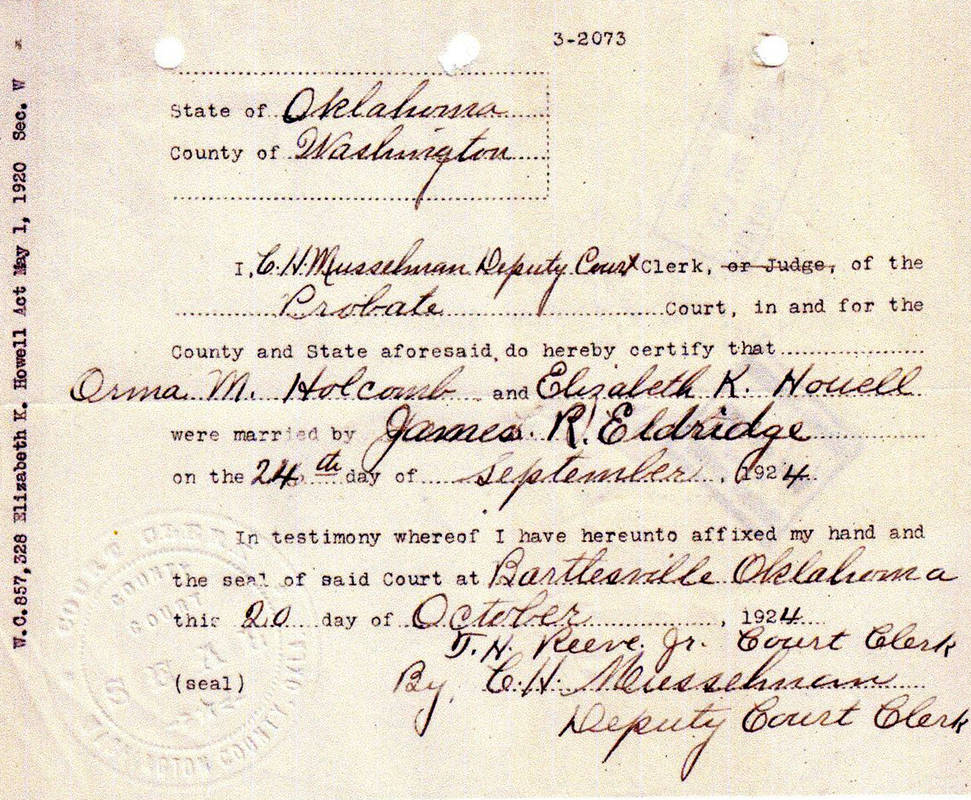 3-2073
W.C.857,328 Elizabeth K. Howell Act May 1, 1920 Sec. W
State of Oklahoma
County of Washington
I, C.H. Musselman Deputy Court Clerk, or Judge, of the
Probate Court, in and for the
County and State aforesaid, do hereby certify that
Orma M. Holcomb and Elizabeth K. Howell
were married by James R. Eldridge
on the 24th day of September, 1924
In testimony whereof I have hereunto affixed my hand and
the seal of said Court at Bartlesville Oklahoma
this 20 day of October, 1924
T.H. Reeve Jr. Court Clerk
(seal) By, C.H. Musselman
Deputy Court Clerk
COURT CLERK
COUNTY
COURT
SEAL
WASHINGTON COUNTY, OKLA